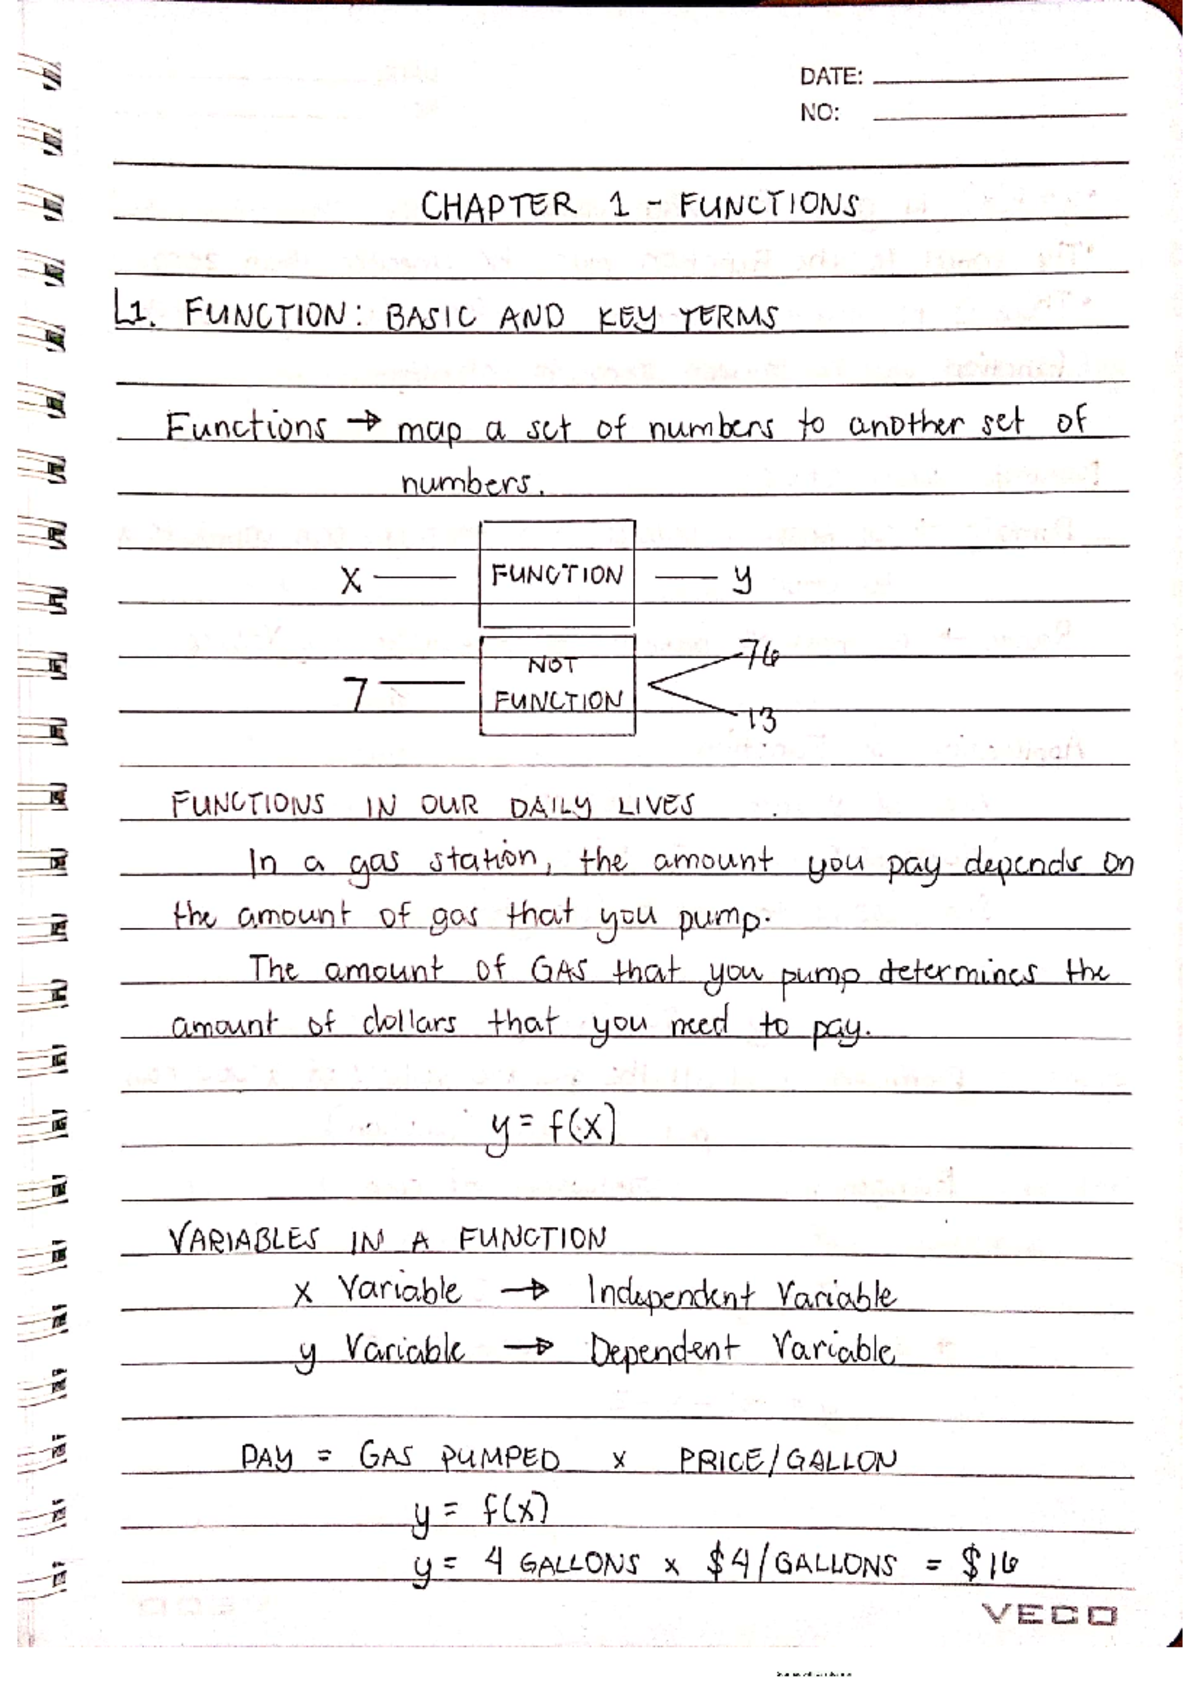 DATE:
NO:
CHAPTER 1 - FUNCTIONS
L1. FUNCTION: BASIC AND KEY TERMS
Functions → map a set of numbers to another set of
numbers.
x — FUNCTION — y
7 — NOT FUNCTION < 76
13
FUNCTIONS IN OUR DAILY LIVES
In a gas station, the amount you pay depends on
the amount of gas that you pump.
The amount of GAS that you pump determines the
amount of dollars that you need to pay.
y = f(x)
VARIABLES IN A FUNCTION
x Variable → Independent Variable
y Variable → Dependent Variable
PAY = GAS PUMPED x PRICE/GALLON
y = f(x)
y = 4 GALLONS x $4/GALLONS = $16
VECO